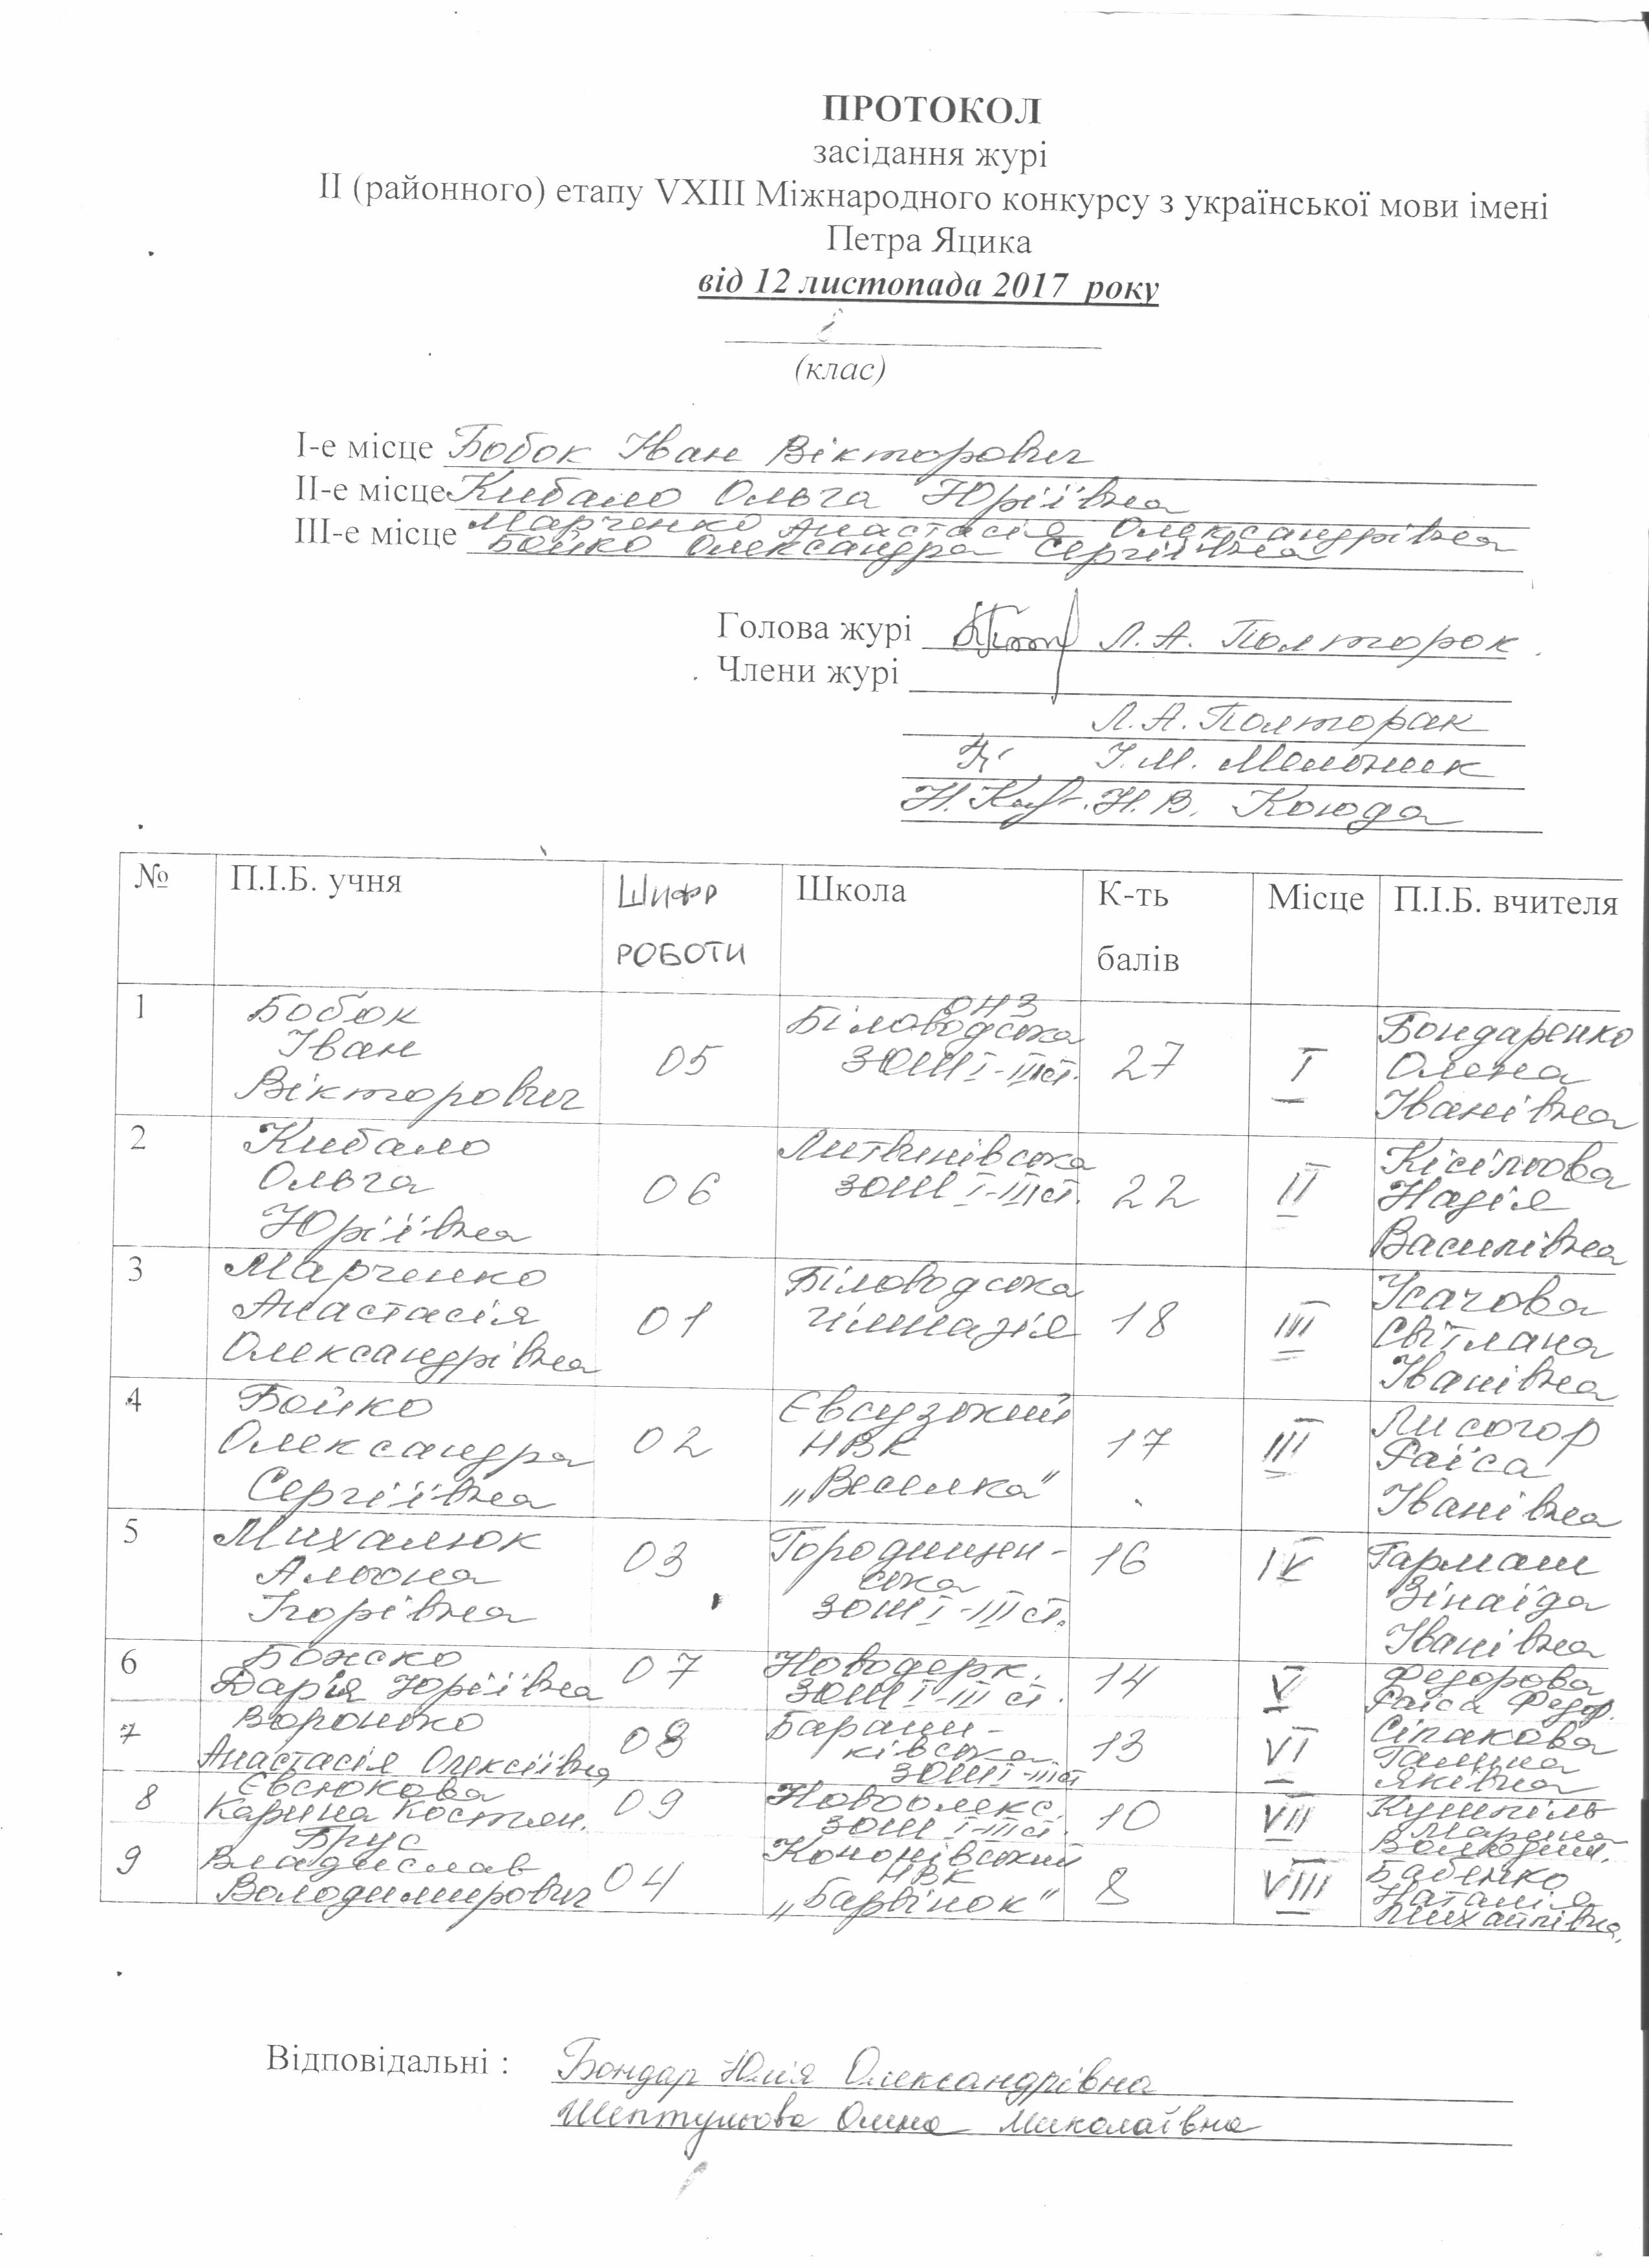 ПРОТОКОЛ
засідання журі
ІІ (районного) етапу VХІІІ Міжнародного конкурсу з української мови імені
Петра Яцика
від 12 листопада 2017 року
(клас)
І-е місце Бобок Іван Вікторович
ІІ-е місце Кибало Ольга Юріївна
ІІІ-е місце Марченко Анастасія Олександрівна
Бойко Олександра Сергіївна
Голова журі Л. А. Полторок
Члени журі
Л. А. Полторак
І. М. Мельник
Н. В. Коюда
№ П.І.Б. учня Шифр роботи Школа К-ть балів Місце П.І.Б. вчителя
1 Бобок Іван Вікторович 05 ОНЗ Біловодська ЗОШ І-ІІІ ст. 27 І Бондаренко Олена Іванівна
2 Кибало Ольга Юріївна 06 Литвинівська ЗОШ І-ІІІ ст. 22 ІІ Кісільова Надія Василівна
3 Марченко Анастасія Олександрівна 01 Біловодська гімназія 18 ІІІ Усачова Світлана Іванівна
4 Бойко Олександра Сергіївна 02 Євсузький НВК „Веселка" 17 ІІІ Лисогор Раїса Іванівна
5 Михалюк Альона Ігорівна 03 Городищен-ська ЗОШ І-ІІІ ст. 16 IV Гармаш Зінаїда Іванівна
6 Божко Дар'я Юріївна 07 Новодерк. ЗОШ І-ІІІ ст. 14 V Федорова Раїса Федор.
7 Воронько Анастасія Олексіївна 08 Барани-ківська ЗОШ І-ІІІ ст 13 VI Сіпакова Галина Яківна
8 Євсюкова Карина Костян. 09 Новоолекс. ЗОШ І-ІІІ ст. 10 VII Марина
9 Брус Владислав Володимирович 04 Кононівський НВК „Барвінок" 8 VIII Бабенко Наталія Михайлівна
Відповідальні : Бондар Юлія Олександрівна
Шептухова Олена Миколаївна